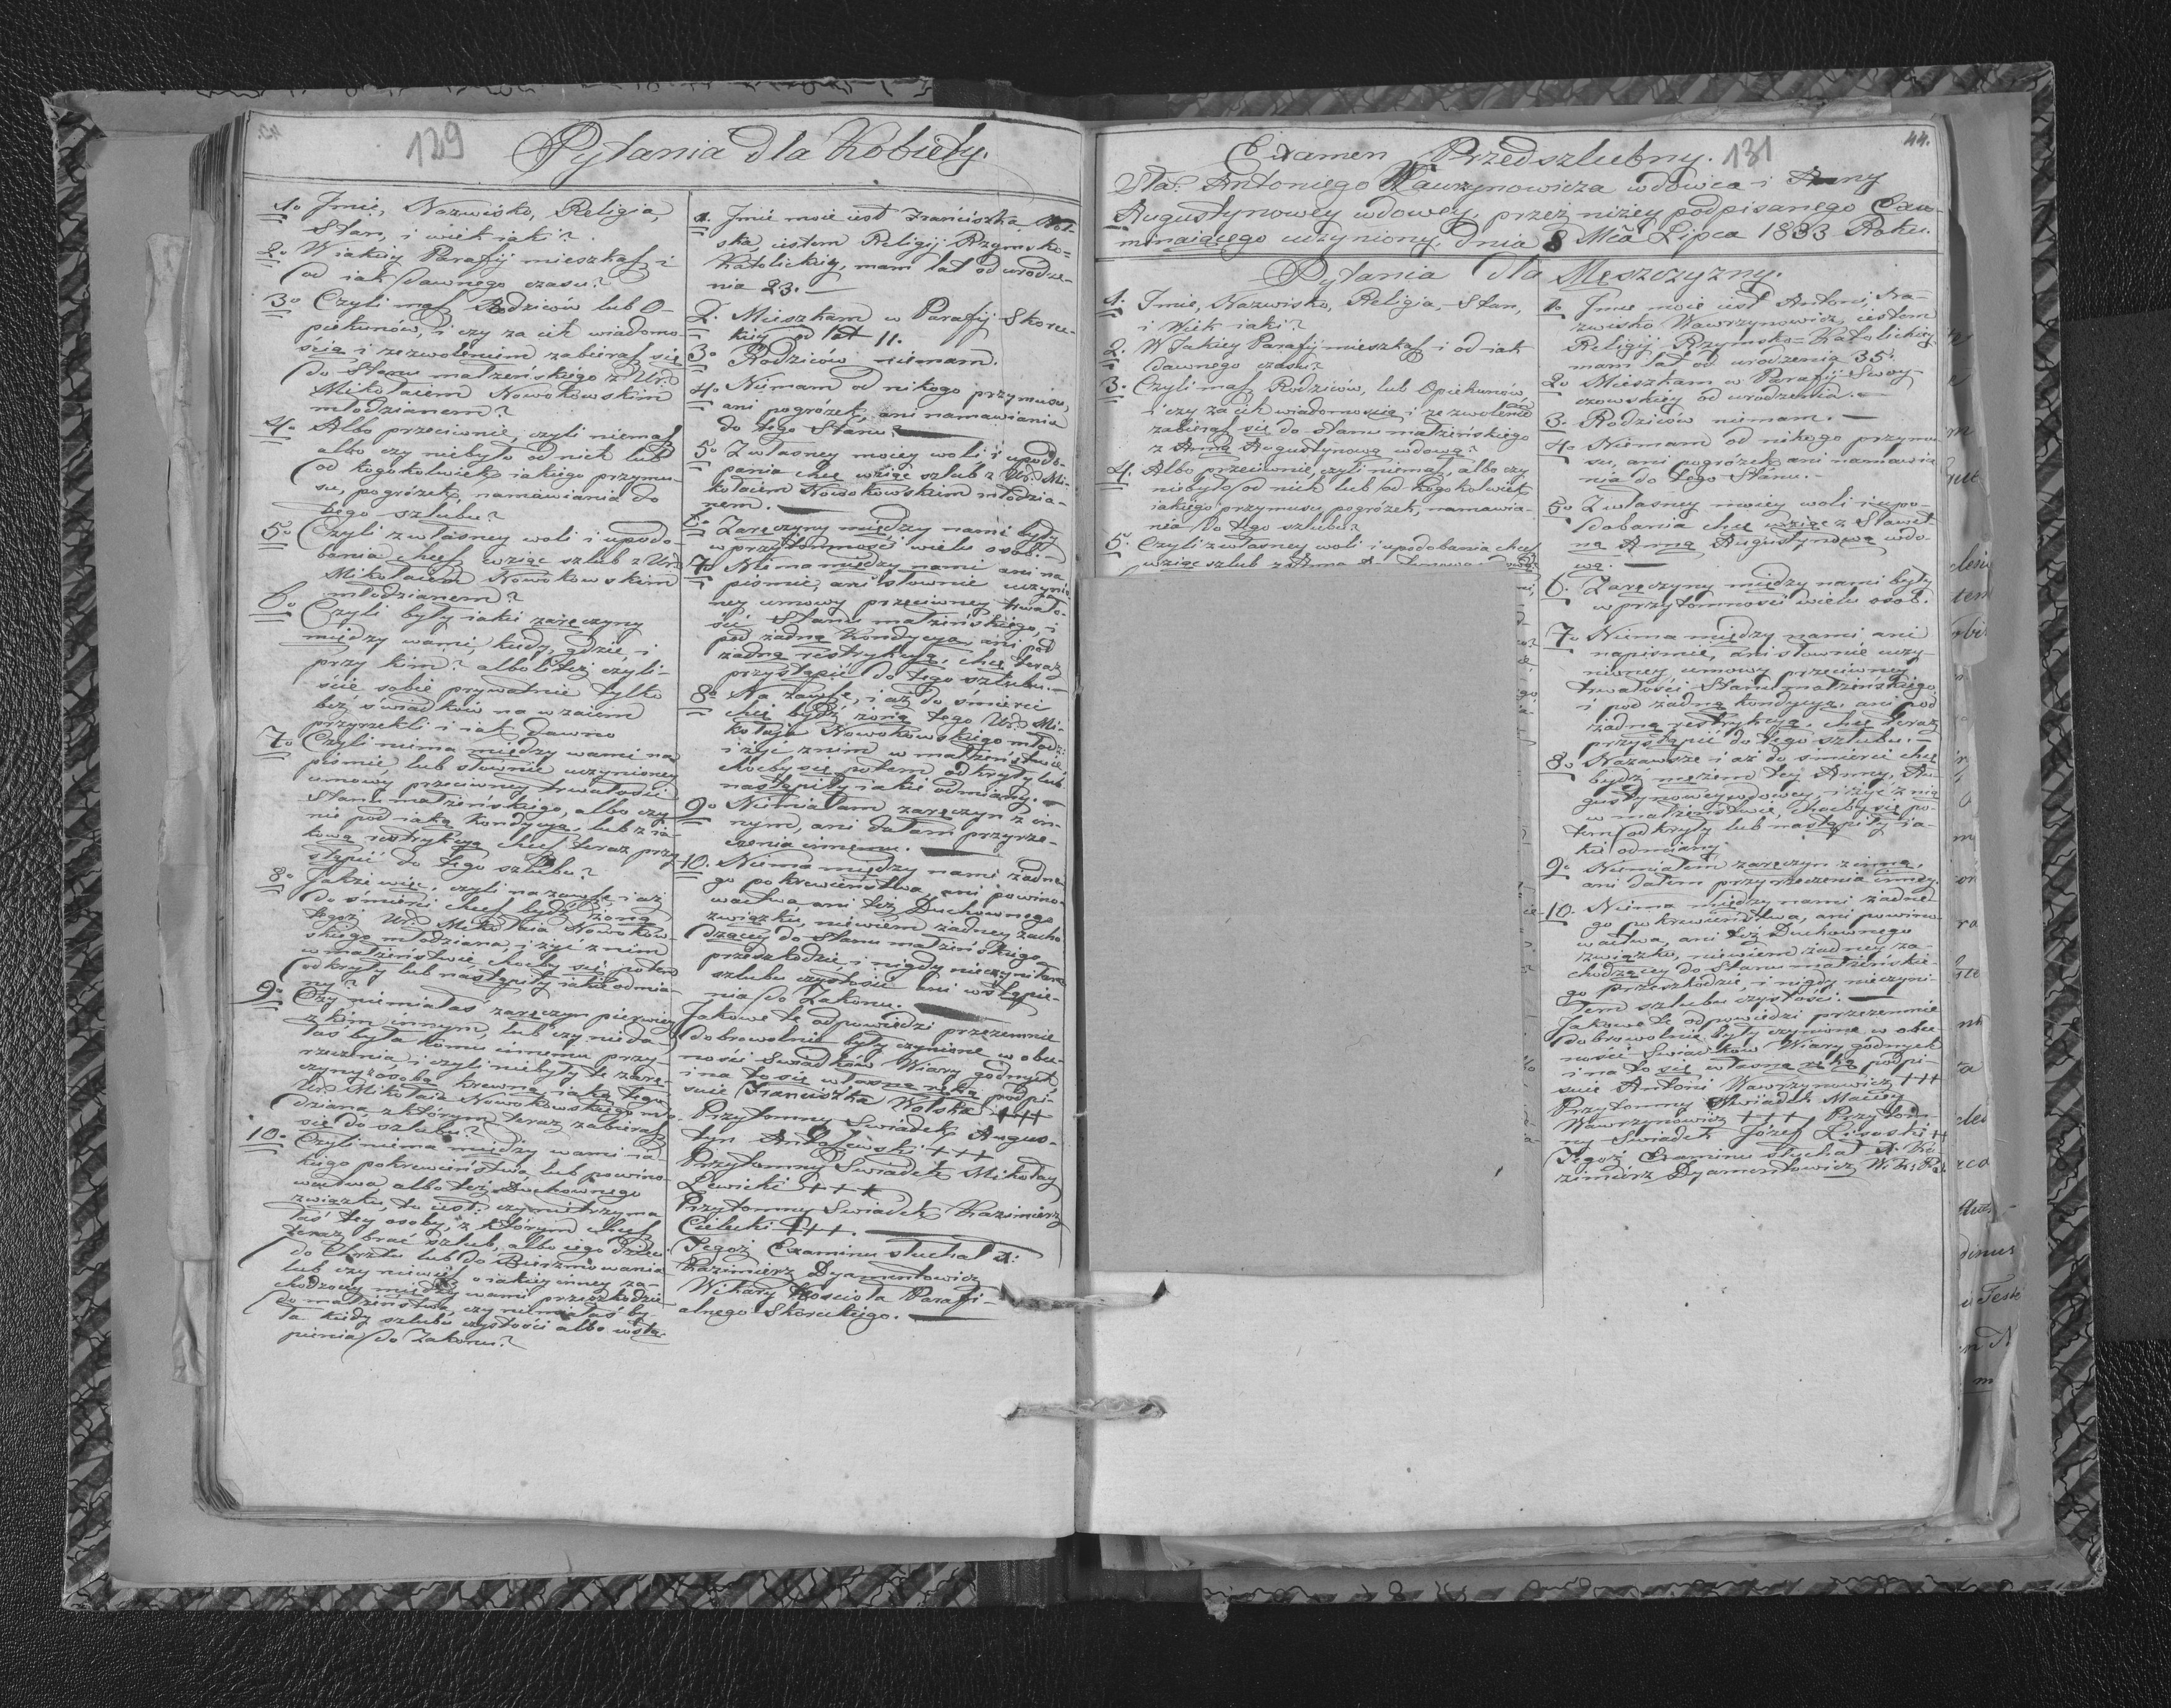 129
Pytania dla Kobiety.
1o Jmie, Nazwisko, Religia,
Stan, i wiek iaki?
2o W iakiey Parafij mieszkasz i
od iak dawnego czasu?
3o Czyli masz Rodziców lub O-
piekunów, i czy za ich wiadomo-
ścią i zezwoleniem zabierasz się
do Stanu małzeńskiego z Ur:
Mikołaiem Nowokowskim
młodzianem?
4o Albo przeciwnie, czyli niemasz
albo czy niebyło od nich lub
od kogokolwiek iakiego przymu-
su, pogrózek, namawiania do
tego szlubu?
5o Czyli z własney woli i upodo-
bania chcesz wziąc szlub z Ur:
Mikołaiem Nowokowskim
młodzianem?
6o Czyli były iakie zaręczyny
między wami, kiedy, gdzie i
przy kim? albo też czyli-
ście sobie prywatnie tylko
bez swiadków na wzaiem
przyrzekli i iak dawno
7o Czyli niema między wami na
pismie lub słownie uczynioney
umowy przeciwney trwałości
Stanu małzeńskiego, albo czy
nie pod iaką kondycyą, lub z ia-
kową restrykcyą chcesz teraz przy
stąpić do tego szlubu?
8o Jakże więc, czyli na zawsze, i aż
do smierci chcesz bydź żoną
tegoż Ur: Mikołaia Nowokow-
skiego młodziana, i żyć z nim
w małzeństwie choćby się potem
odkryły lub nastąpiły iakie odmia-
ny?
9o Czy niemiałas zaręczyn pierwiey
z kim innym, lub czy nieda-
łaś była komu innemu przy-
rzeczenia, i czyli niebyły te zarę-
czyny z osobą krewną iaką tego
Ur: Mikołaia Nowokowskiego mło-
dziana, z którym teraz zabierasz
się do szlubu?
10o Czyli niema między wami ia-
kiego pokrewieństwa lub powino-
wactwa albo też Duchownego
związku, to iest: czy nie trzyma-
łaś tey osoby, z którym chcesz
teraz brać szlub, albo iego dzieci
do Chrztu lub do Bierzmowania
lub czy niewiesz o iakiey inney za-
chodzącey między wami przeszkodzie
do małzeństwa, czy nie miałaś by-
ła kiedy szlubu czystości albo wstą-
pienia do Zakonu?
1. Jmie moie iest Franciszka Wol-
ska, iestem Religij Rzymsko=
Katolickiey, mam lat od urodze-
nia 23.
2. Mieszkam w Parafij Skorec-
kiey od lat 11.
3o Rodziców niemam.
4o Niemam od nikogo przymusu,
ani pogrózek, ani namawiania
do tego Stanu.
5o Z własney mocey woli i upodo-
bania chcę wziąć szlub z Ur: Mi-
kołaiem Nowokowskim młodzia-
nem.
6o Zaręczyny między nami były
w przytomności wielu osób.
7o Niema między nami ani na
pismie, ani słownie uczynio-
ney umowy przeciwney trwało-
ści Stanu małzeńskiego, i
pod żadną Kondycyą, ani pod
żadną restrykcyą, chcę teraz
przystąpić do tego szlubu.
8o Na zawsze, i aż do śmierci
chcę bydź żoną tego Ur: Mi-
kołaja Nowokowskiego młodz:
i żyć z nim w małżeństwie,
choćby się potem odkryły lub
nastąpiły iakie odmiany.
9o Niemiałam zaręczyn z in-
nym, ani dałam przyrze-
czenia innemu.
10. Niema między nami żadne-
go pokrewieństwa, ani powino-
wactwa ani też Duchownego
związku, niewiem żadney zacho-
dzącey do Stanu małzeńskiego
przeszkodzie i nigdy nieczyniłam
szlubu czystości ani wstąpie-
nia do Zakonu.
Jakowe te odpowiedzi przezemnie
dobrowolnie były czynione w obec-
ności Swiadków Wiary godnych
i na to się własną ręką podpi-
suie Franciszka Wolska +++
Przytomny Swiadek Augus-
tyn +++
Przytomny Swiadek Mikołay
Lewicki +++
Przytomny Swiadek Kazimierz
Cielecki +++
Tegoż Examinu słuchał X:
Kazimierz Dyamentowicz
Wikary Koscioła Parafi-
alnego Skoreckiego.
44.
Examen Przedszlubny. 131
Sła: Antoniego Wawrzynowicza wdowca i Anny
Augustynowey wdowey, przez niżey podpisanego Exa-
minaiącego uczyniony. Dnia 8 Mca Lipca 1833 Roku.
Pytania dla Męszczyzny.
1. Jmie, Nazwisko, Religia, Stan,
i Wiek iaki?
2. W Jakiey Parafij mieszkasz i od iak
dawnego czasu?
3. Czyli masz Rodziców, lub Opiekunów,
i czy za ich wiadomoscią i zezwoleniem
zabierasz się do stanu małzeńskiego
z Anną Augustynową wdową?
4. Albo przeciwnie, czyli niemasz, albo czy
niebyło od nich lub od kogokolwiek
iakiego przymusu, pogrózek, namawia-
nia do tego szlubu?
5. Czyli z własney woli i upodobania chcesz
wziąc szlub z Anną
1o Jmie moie iest Antoni, Na-
zwisko Wawrzynowicz, iestem
Religij Rzymsko=Katolickiey
mam lat od urodzenia 35.
2o Mieszkam w Parafij Swoy-
czowskiey od urodzenia.
3. Rodziców niemam.
4o Niemam od nikogo przymu-
su, ani pogrózek ani namawia-
nia do tego Stanu.
5o Z własney moiey woli i upo-
dobania chcę wziąć z Sławet-
ną Anną Augustynową wdo-
wą.
6. Zaręczyny między nami były
w przytomnosci wielu osób.
7o Niema między nami ani
napismie, ani słownie uczy-
nioney umowy przeciwney
trwałości Stanu małzeńskiego
i pod żadną kondycyą, ani pod
żadną restrykcyą, chcę teraz
przystąpić do tego szlubu.
8o Nazawsze i aż do smierci chcę
bydź mężem tey Anny, Au-
gustynowey wdowey, i żyć z nią
w małzeństwie, choćby się po-
tem odkryły lub nastąpiły ia-
kie odmiany.
9o Niemiałem zaręczyn z inną,
ani dałem przyrzeczenia inney.
10. Niema między nami żadne-
go pokrewieństwa, ani powino-
wactwa, ani też Duchownego
związku, niewiem żadney za-
chodzącey do Stanu małzeńskie-
go przeszkodzie, i nigdy nieczyni-
łem szlubu czystości.
Jakowe te odpowiedzi przezemnie
dobrowolnie były czynione w obec-
nosci Swiadków Wiary godnych
i na to się własną ręką podpi-
suie Antoni Wawrzynowicz +++
Przytomny Swiadek Maciey
Wawrzynowicz +++ Przytom-
ny Swiadek Józef Lisoski ++
Tegoż Examinu słuchał X. Ka-
zimiérz Dyamentowicz W. K. Pa.